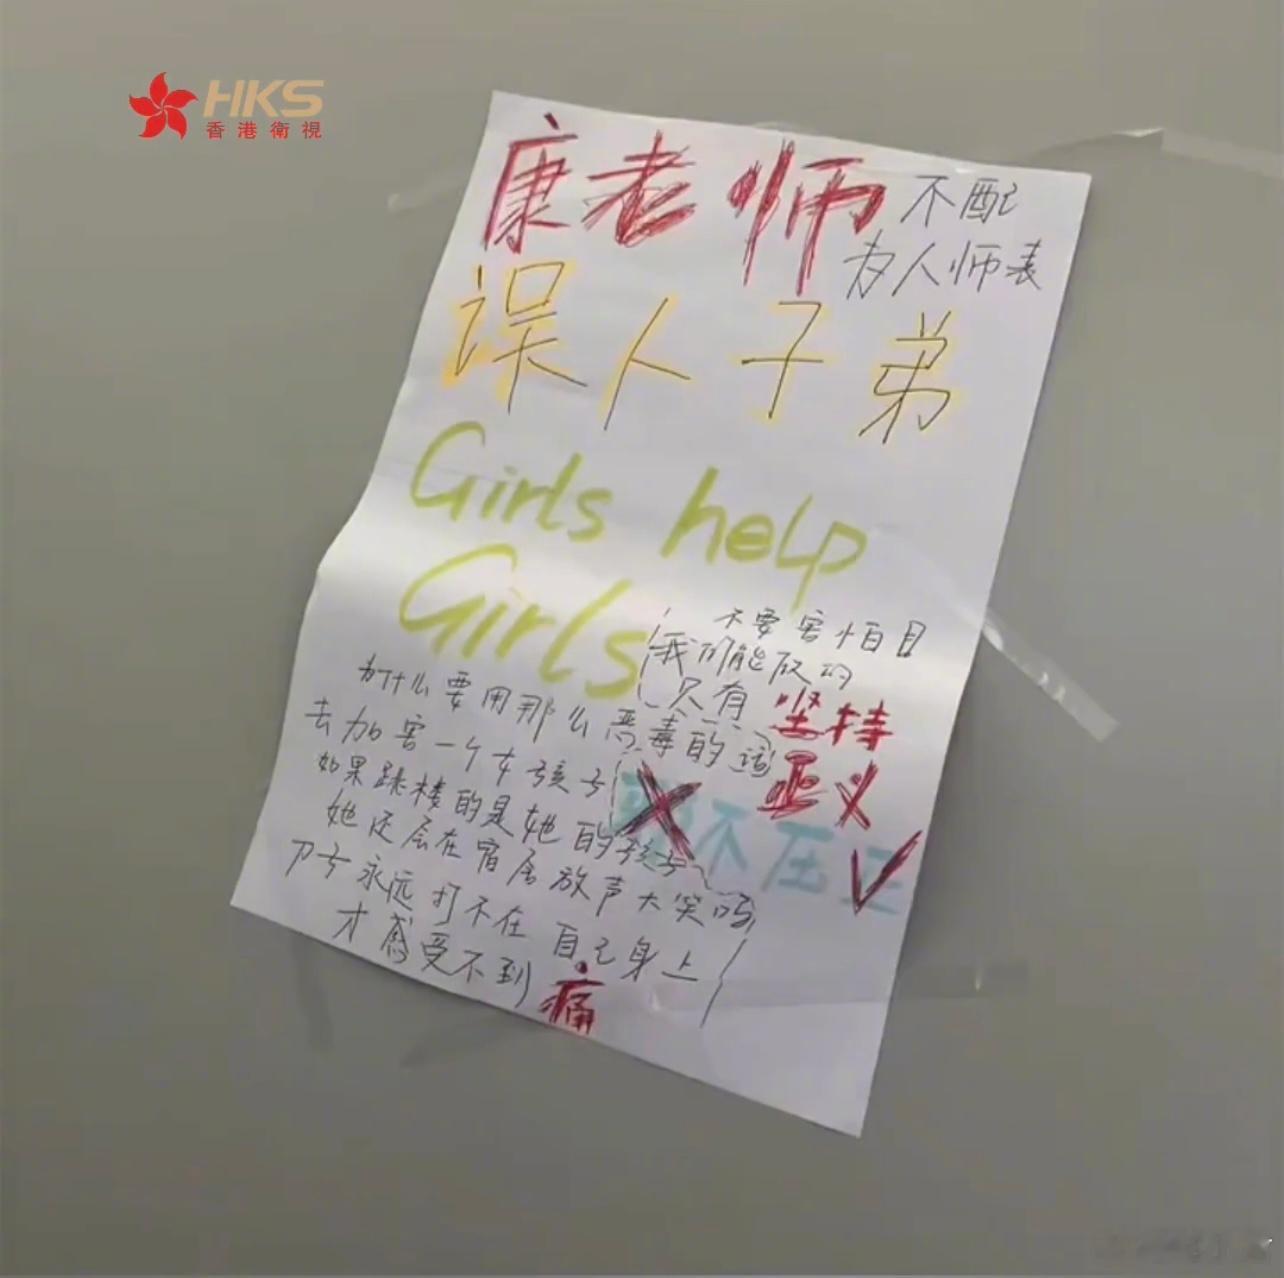 HKS
香港衛視
康老师 不配
为人师表
误人子弟
Girls help
Girls
不要害怕
我们能做的
只有 坚持
正义
为什么要用那么恶毒的词
去加害一个女孩子
如果跳楼的是她的孩子
她还会在宿舍放声大笑吗
刀子永远打不在自己身上
才感受不到痛
不在